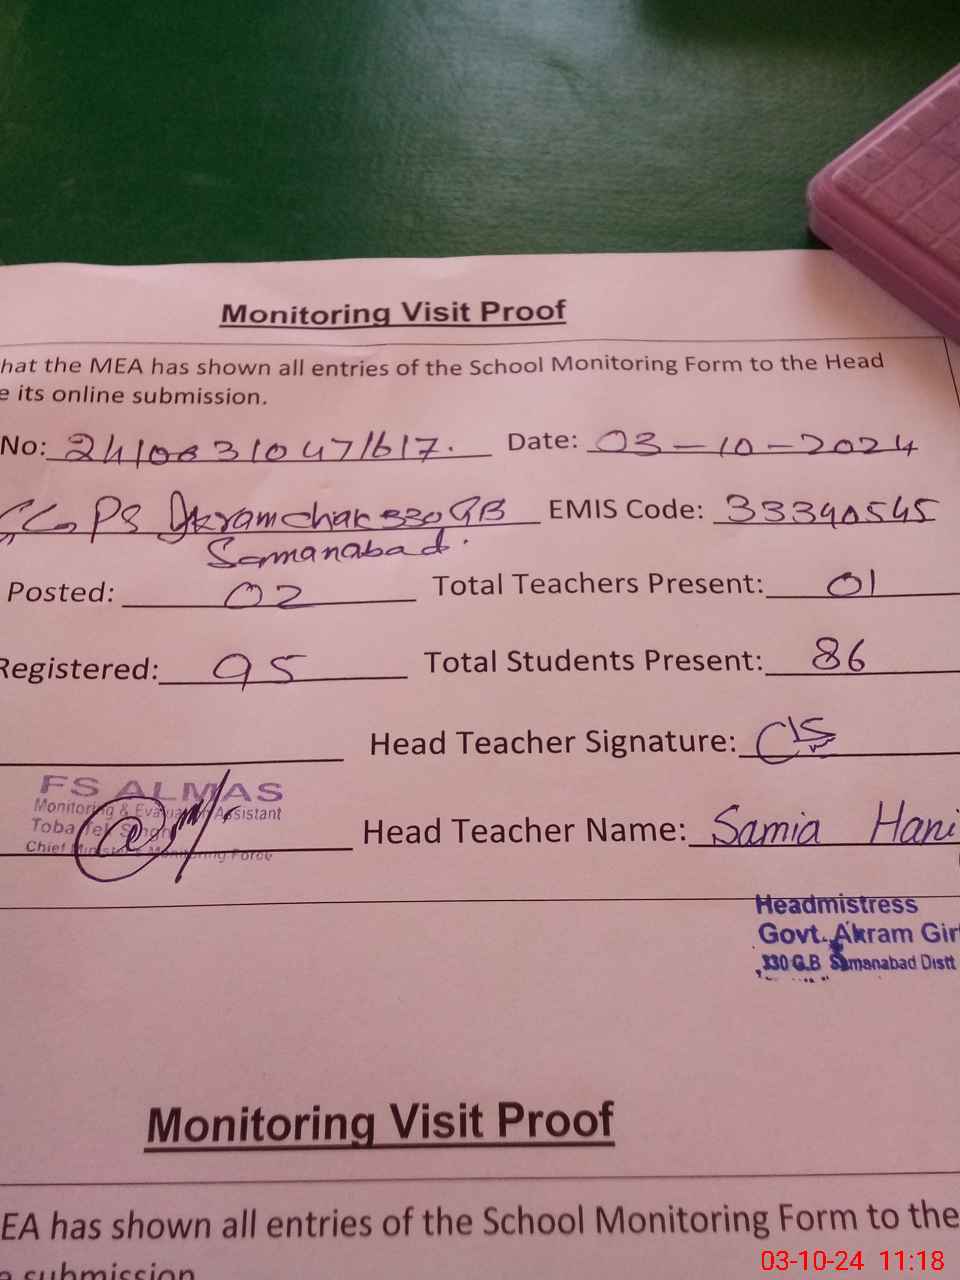 Monitoring Visit Proof
hat the MEA has shown all entries of the School Monitoring Form to the Head
e its online submission.
No: Date: 03-10-2024
PS Akram chak 330 GB EMIS Code: 33340545
Samanabad.
Posted: 02 Total Teachers Present: 01
Registered: 95 Total Students Present: 86
Head Teacher Signature:
FS ALMAS
Monitoring & Evaluation Assistant
Toba Tek Singh
Chief Minister's Monitoring Force
Head Teacher Name: Samia Hani
Headmistress
Govt. Akram Girl
330 G.B Samanabad Distt
Monitoring Visit Proof
EA has shown all entries of the School Monitoring Form to the
e submission
03-10-24 11:18